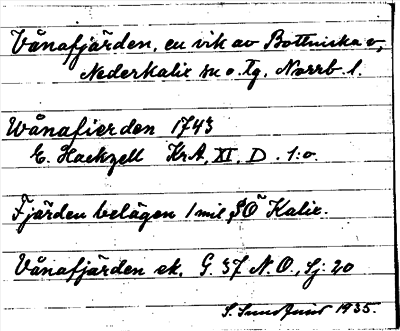 Vånafjärden, en vik av Bottniska v,
Nederkalix sn o. tg. Norrb l.
Wånafierden 1743
E. Hackzell KrA, XI, D. 1:o.
Fjärden belägen 1 mil SÖ Kalix.
Vånafjärden ek. G. 37 N.O., Sj: 20
S. Sundqvist 1935.